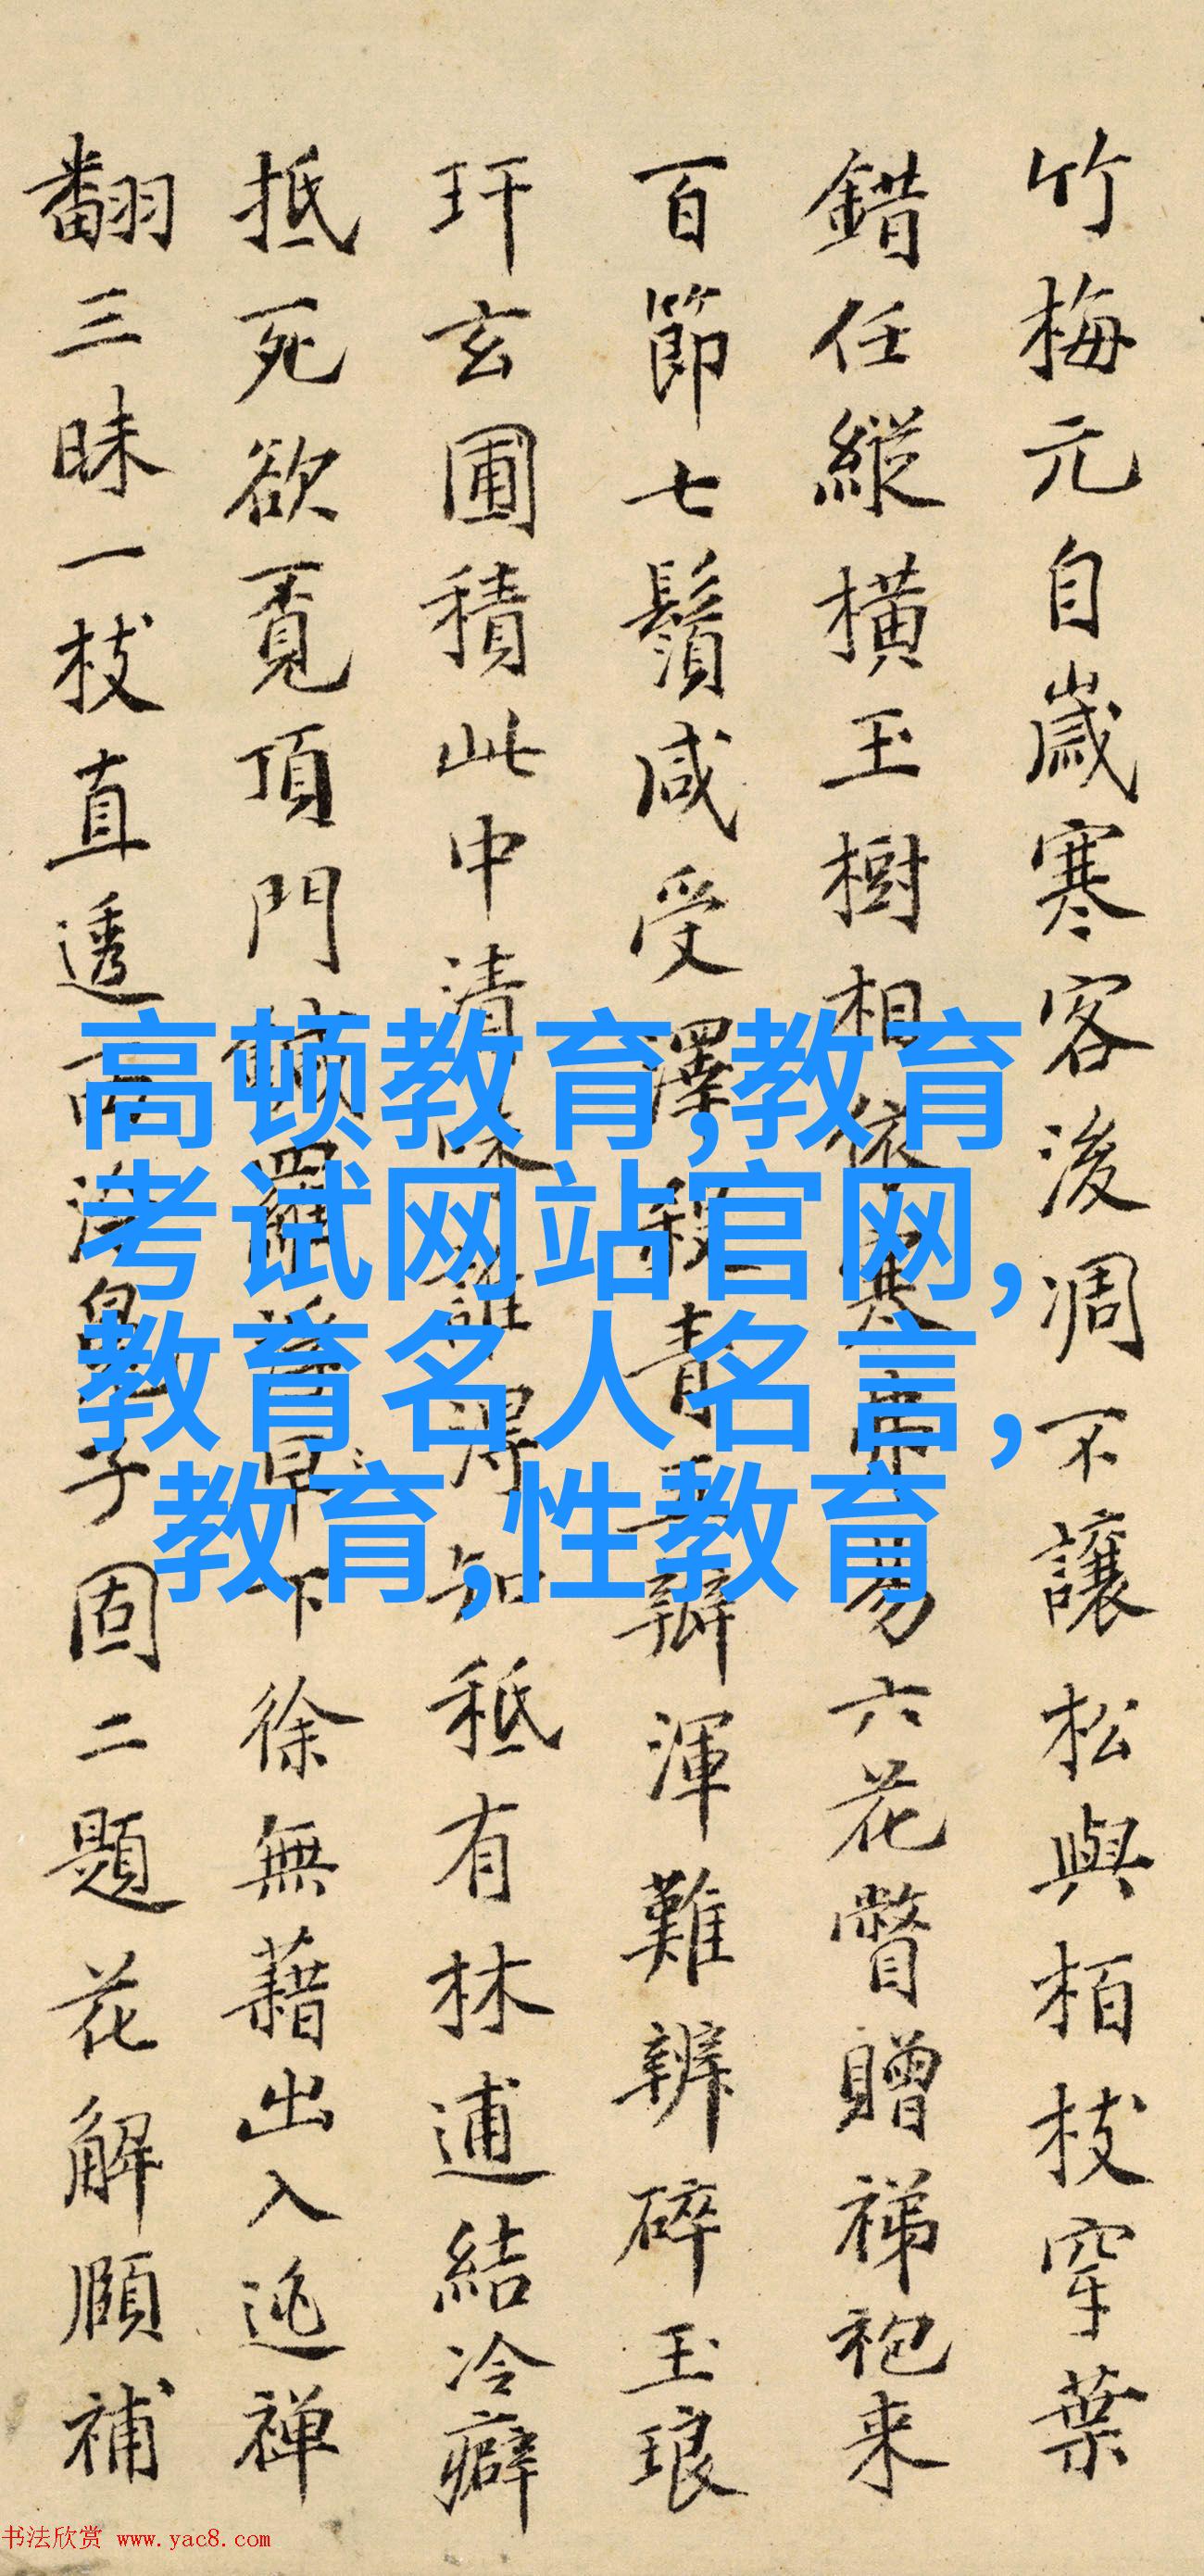 竹梅元自歲寒客後凋不讓松與栢枝穿葉
錯任縱橫玉樹相依寒易六花瞥贈祶袍来
百節七鬚咸受澤青瓣渾難辨碎玉琅
玕玄圃積此中清誰得知秪有林逋結冷癖
抵死欲覔頂門下徐無藉出入逃禅
翻三昧一枝直透子固二題花解頤補
高顿教育,教育
考试网站官网,
教育名人名言,
教育,性教育
书法欣赏 www.yac8.com